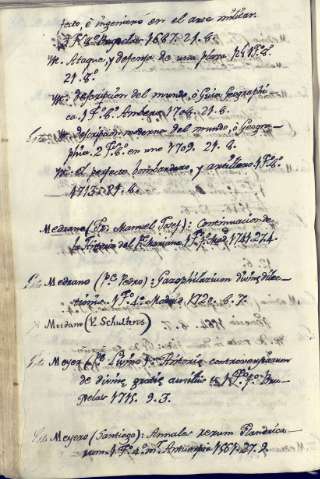 fecto, ô ingeniero en el arte militar.
1 Tº 8º Brusselas 1687. 21. 6.
It. Ataque, y defensa de una plaza 1 Tº 8º
21. 8.
It. descripcion del mundo, ô Guia Geographi
ca. 1 Tº 8º Amberes 21. 6.
It. descripcion moderna del mundo, ô Geogra-
phia. 2 Tº 8º en uno 1709. 21. 6.
It. el perfecto bombardero, y artillero 1 Tº 8º
21. 6.
Medrano (Fr. Manuel Josef): Continuacion de
la Historia del Pº Mariana 1 Tº fº Mad. 1741. 27. 4.
Medrano (Pº Pedro): Gazophilacium divinæ dilec-
tionis. 1 Tº 4º Madrid 6. 7.
Meedano (V. Schultens)
Meyer (Livino): Historia controversiarum
de divinæ gratiæ auxiliis 1 Tº fº Bru-
selas 1715. 9. 3.
Meyero (Santiago): Annales rerum Flandrica-
rum 1 Tº fº mº Antuerpiæ 1561. 27. 2.